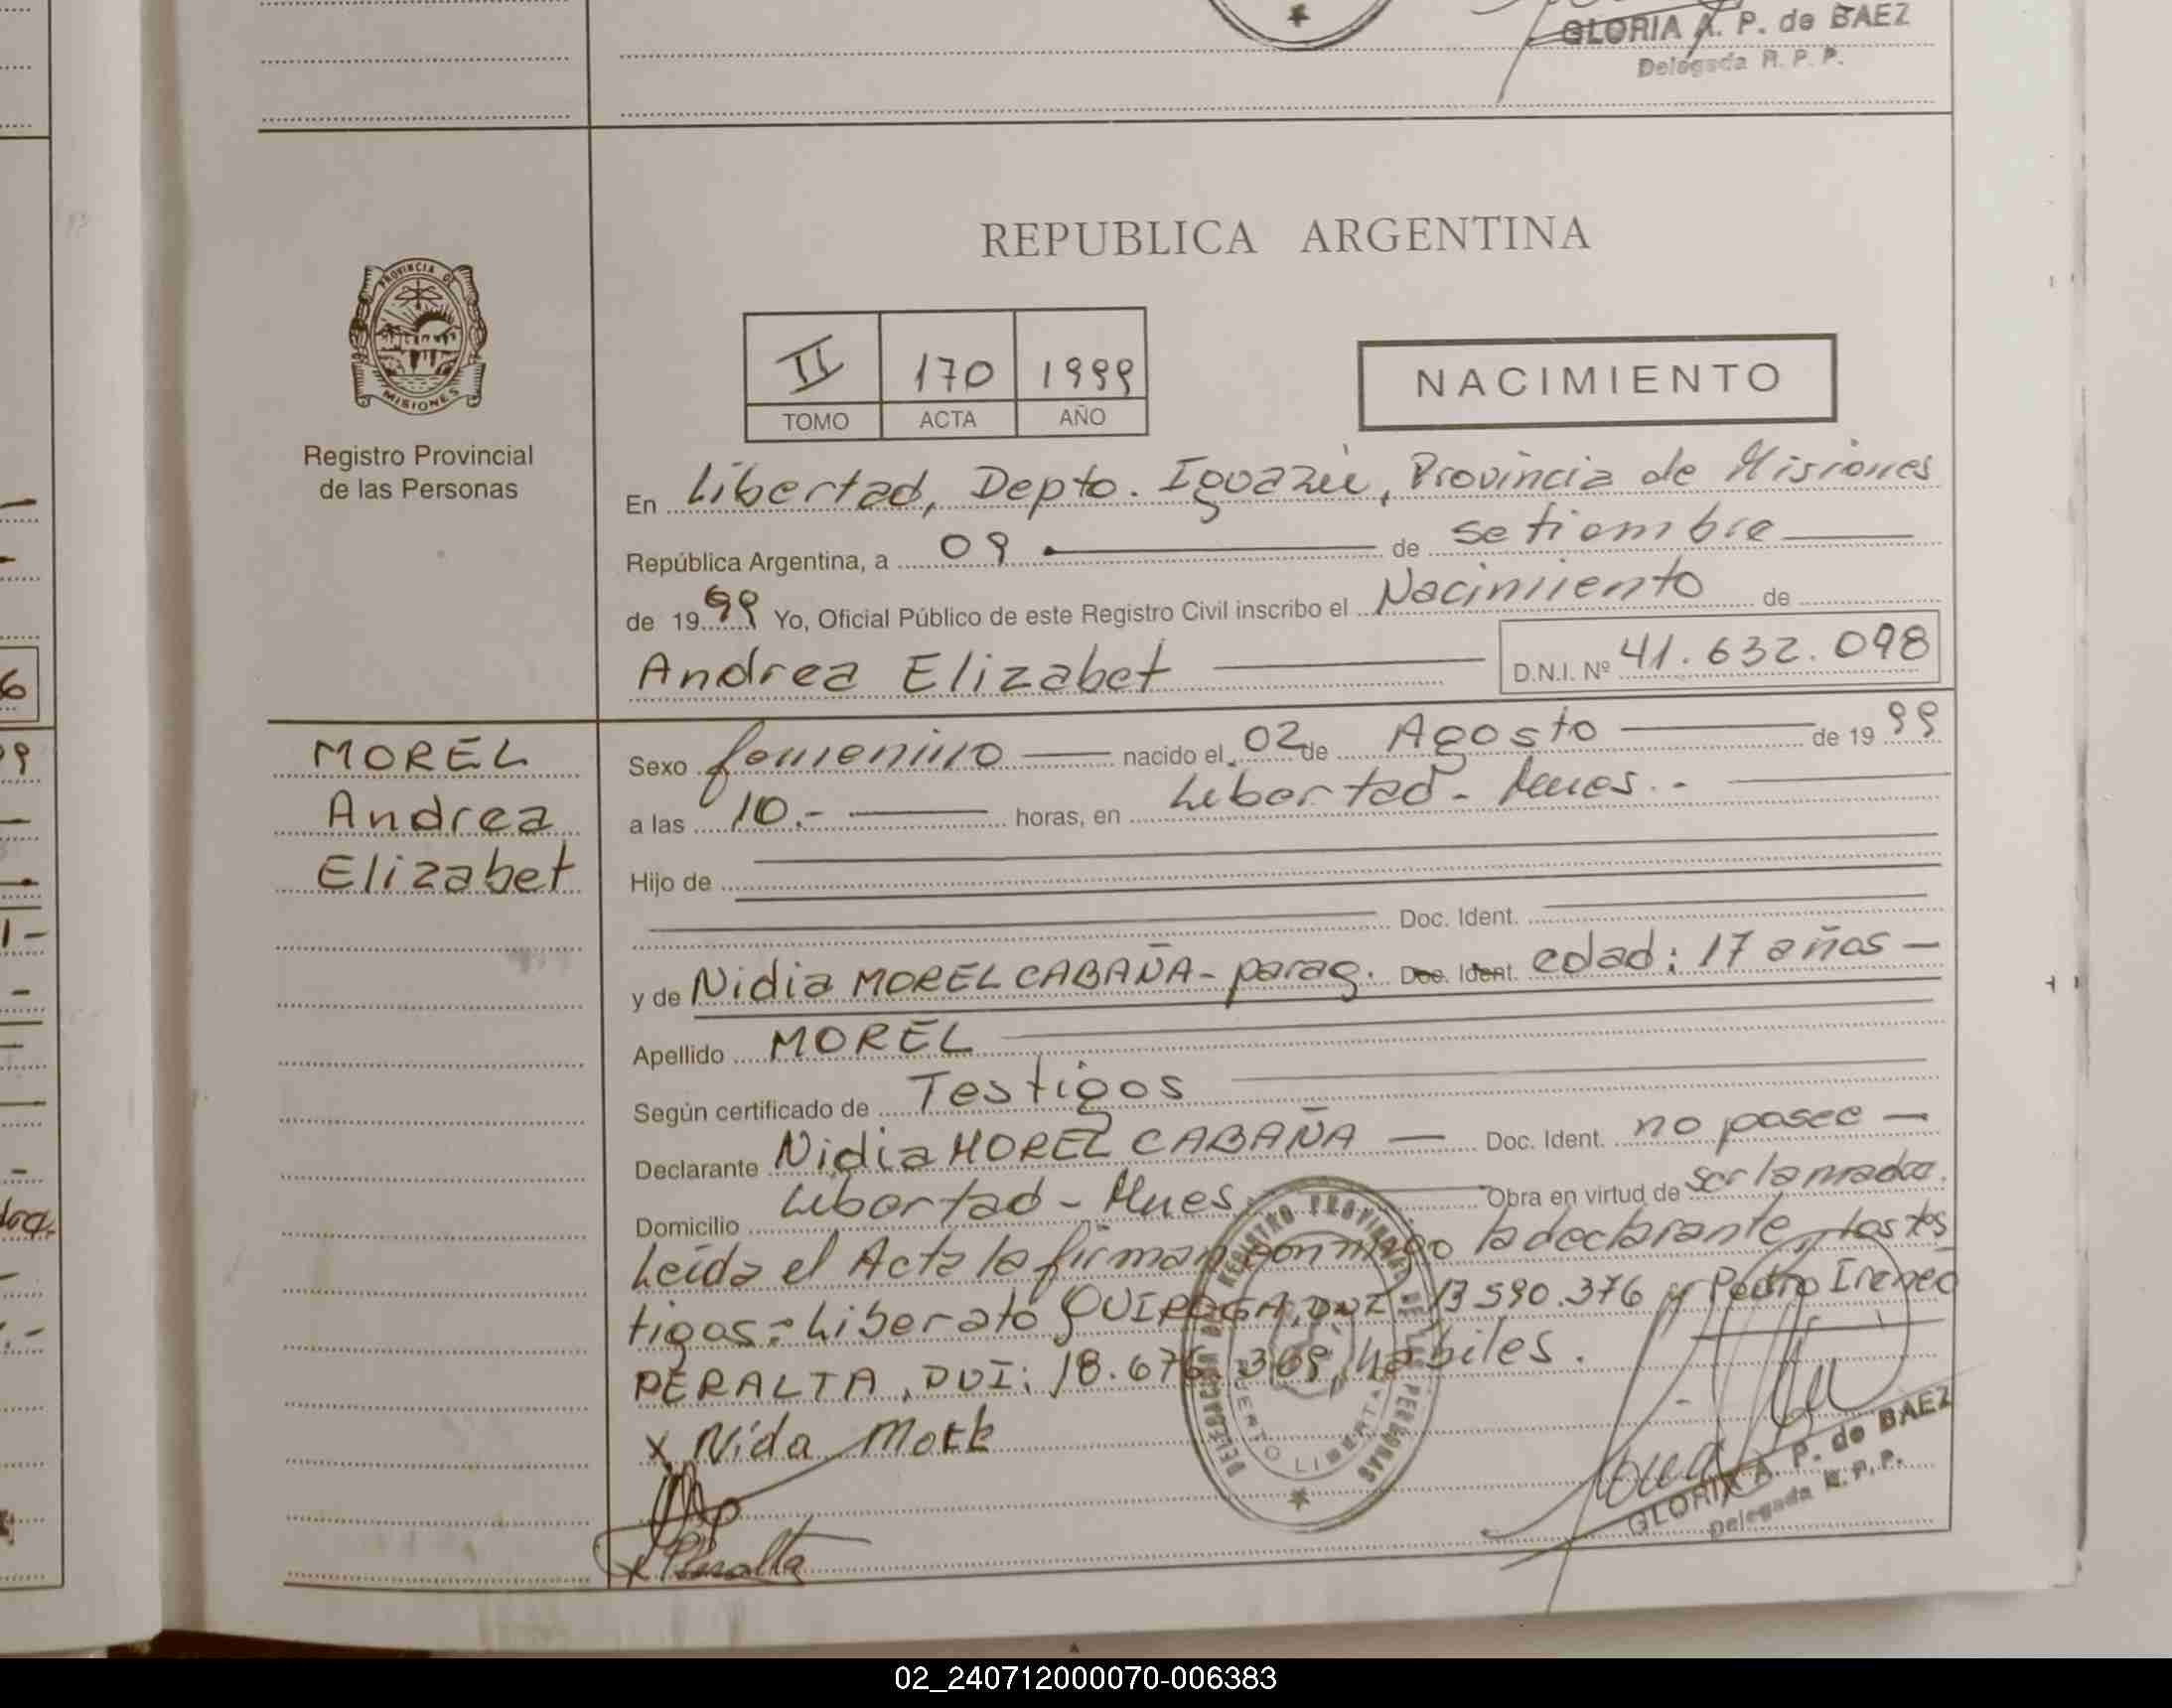 GLORIA A. P. de BAEZ
Delegada R. P. P.
PROVINCIA DE
MISIONES
Registro Provincial
de las Personas
REPUBLICA ARGENTINA
II 170 1999
TOMO ACTA AÑO
NACIMIENTO
En Libertad, Depto. Iguazú, Provincia de Misiones
República Argentina, a 09 de setiembre
de 1999 Yo, Oficial Público de este Registro Civil inscribo el Nacimiento de
Andrea Elizabet D.N.I. Nº 41.632.098
MOREL
Andrea
Elizabet
Sexo femenino nacido el 02 de Agosto de 1999
a las 10.- horas, en Libertad - Mnes.-
Hijo de
Doc. Ident.
y de Nidia MOREL CABAÑA - parag. Doc. Ident. edad: 17 años -
Apellido MOREL
Según certificado de Testigos
Declarante Nidia MOREL CABAÑA - Doc. Ident. no posee -
Domicilio Libertad - Mnes. Obra en virtud de ser la madre.
Leída el Acta la firman conmigo la declarante, los tes
tigos: Liberato QUIROGA, DNI 13590.376 y Pedro Ireneo
PERALTA, DNI: 18.676.369, hábiles.
x Nida
x Peralta
REGISTRO PROVINCIAL DE LAS PERSONAS
DELEGACION
PUERTO LIBERTAD
GLORIA A. P. de BAEZ
Delegada R. P. P.
02_240712000070-006383